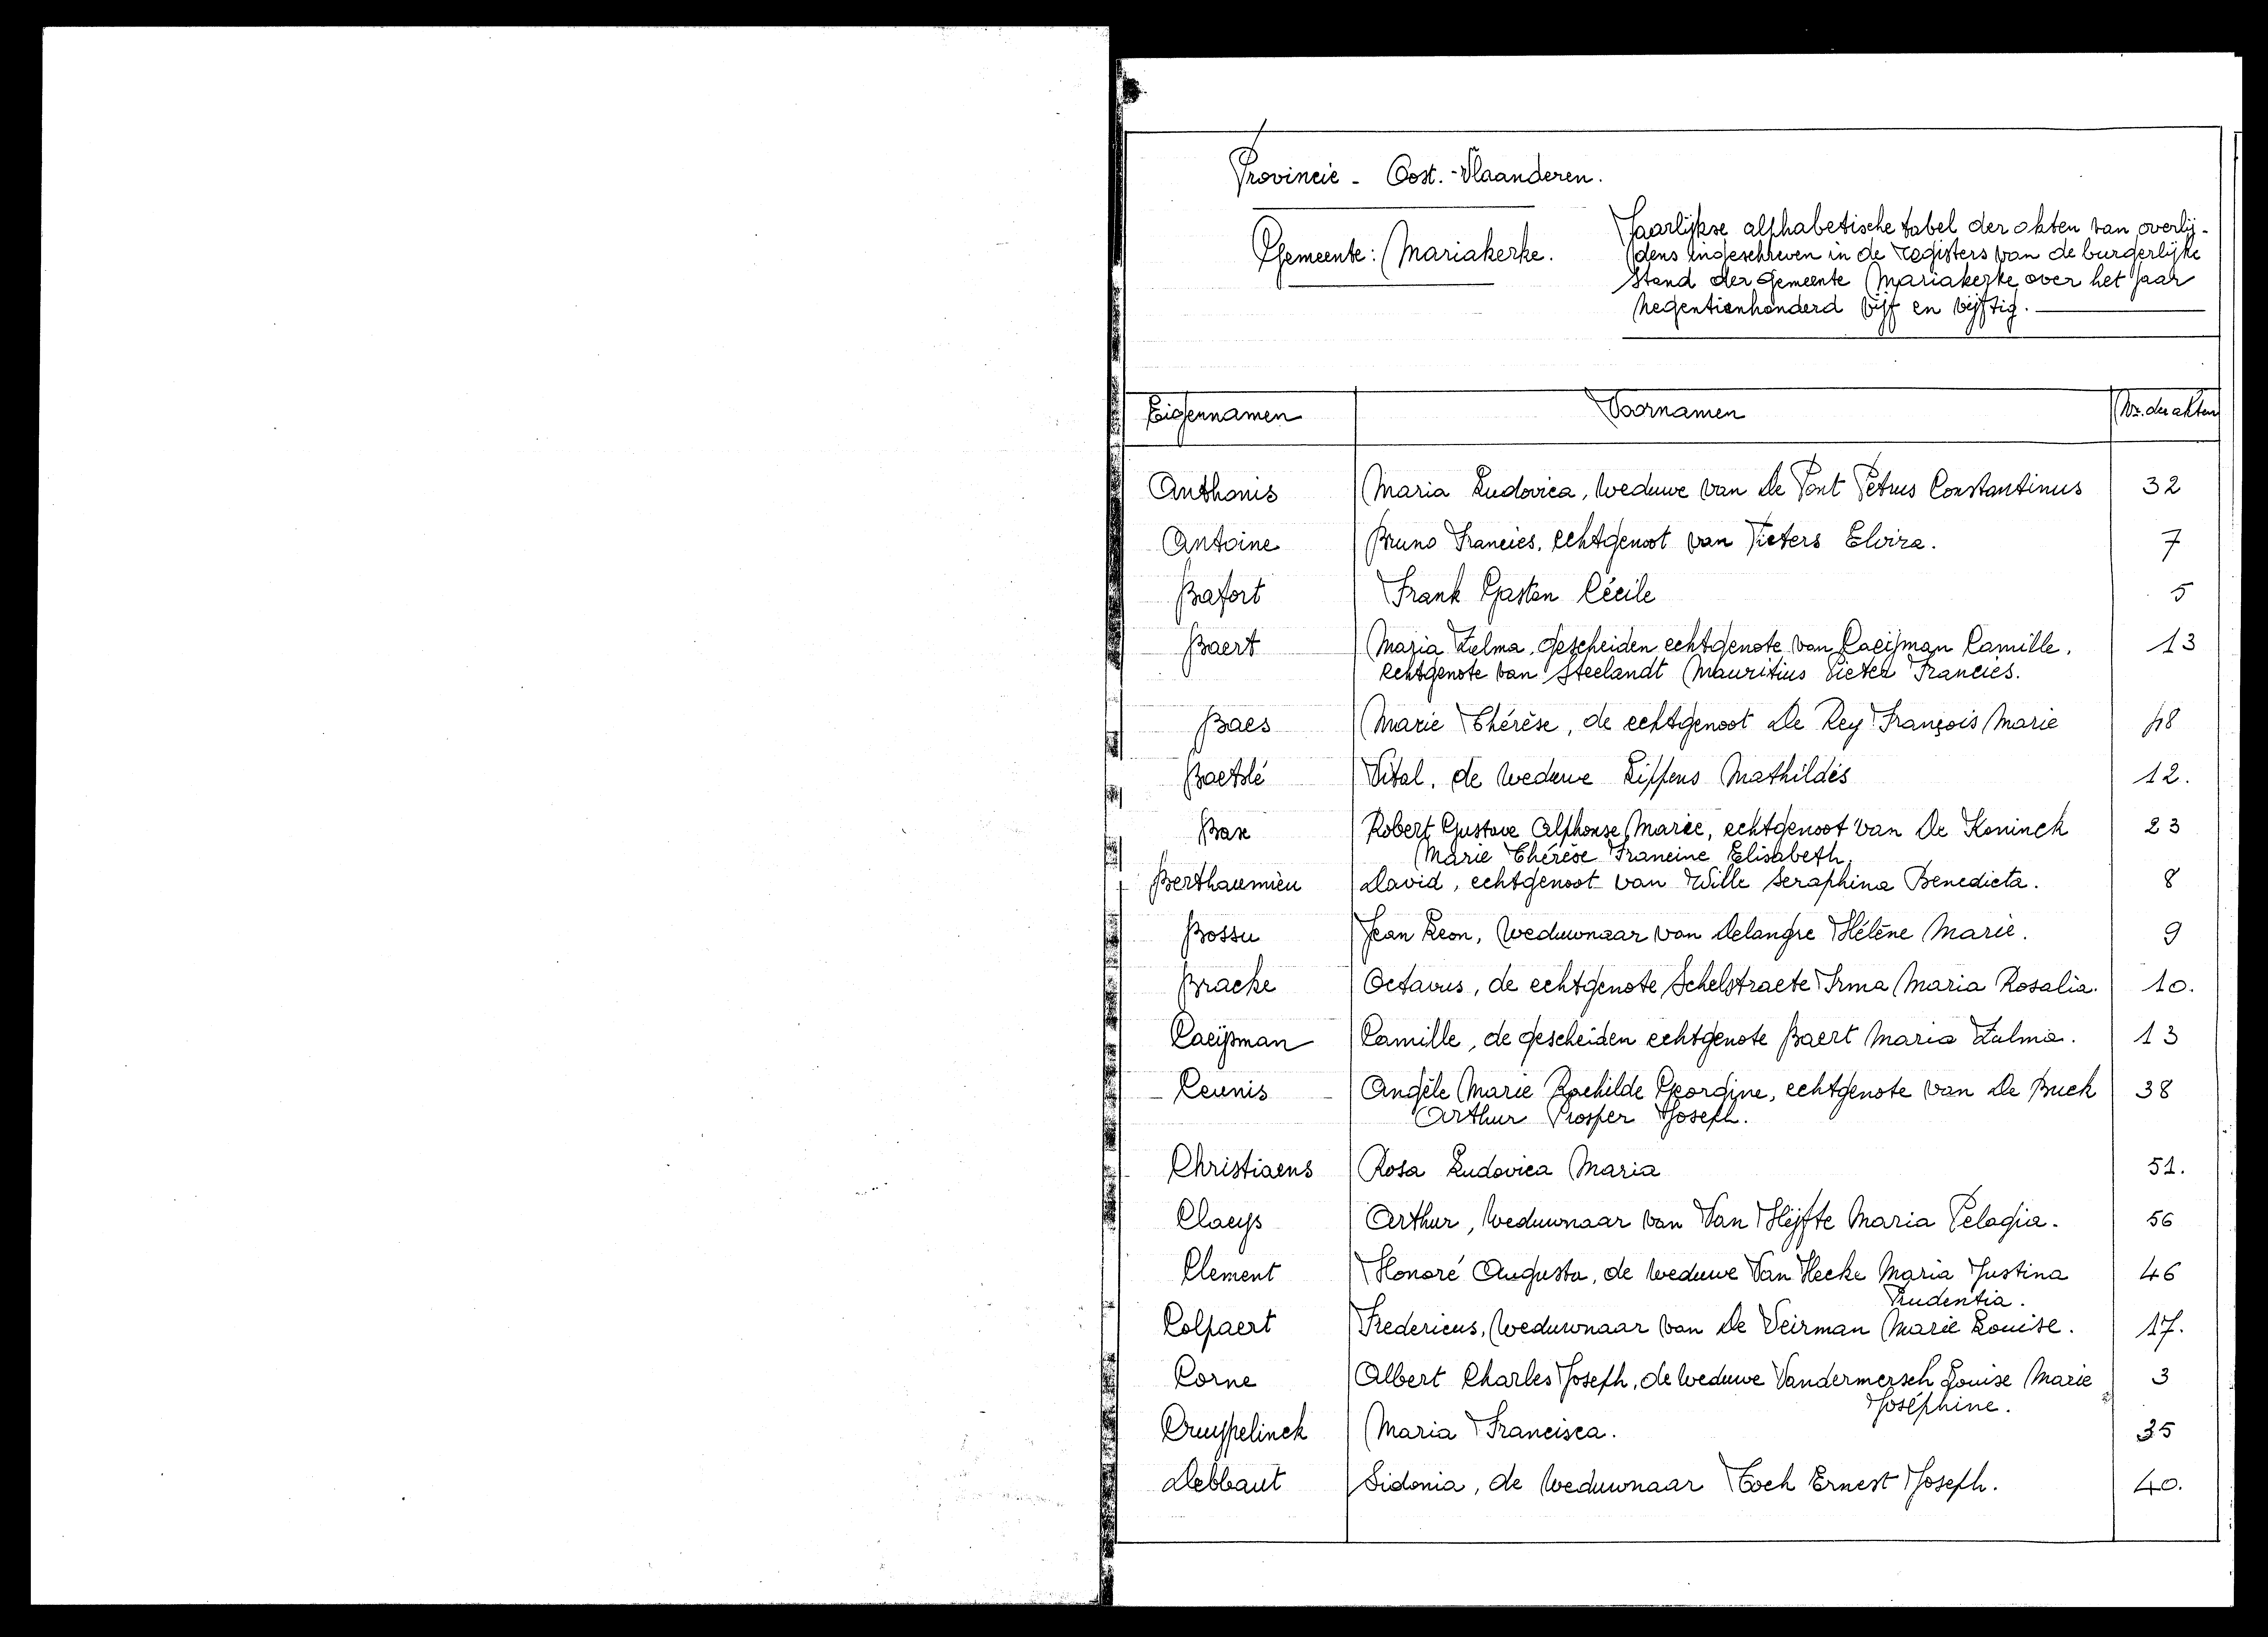 Provincie - Oost.-Vlaanderen.
Gemeente: Mariakerke.
Jaarlijkse alphabetische tabel der akten van overlij-
dens ingeschreven in de registers van de burgerlijke
stand der gemeente Mariakerke over het jaar
negentienhonderd vijf en vijftig.
Eigennamen Voornamen Nr. der akten
Anthonis Maria Ludovica, weduwe van De Pont Petrus Constantinus 32
Antoine Bruno Francies, echtgenoot van Pieters Elvira. 7
Bafort Frank Gaston Cécile 5
Baert Maria Zulma, gescheiden echtgenote van Caeijman Camille, 13
echtgenote van Steelandt Mauritius Pieter Francies.
Baes Marie Thérèse, de echtgenoot De Rey François Marie 18
Baetslé Vital, de weduwe Lippens Mathildés 12.
Bax Robert Gustave Alphonse Marie, echtgenoot van De Koninck 23
Marie Thérèse Francine Elisabeth.
Berthaumieu David, echtgenoot van Wille Seraphina Benedicta. 8
Bossu Jean Leon, weduwnaar van Delangre Hélène Marie. 9
Bracke Octavus, de echtgenote Schelstraete Irma Maria Rosalia. 10.
Caeijman Camille, de gescheiden echtgenote Baert Maria Zulma. 13
Ceunis Angèle Marie Rachilde Georgine, echtgenote van De Buck 38
Arthur Prosper Joseph.
Christiaens Rosa Ludovica Maria 51.
Claeys Arthur, weduwnaar van Van Hijfte Maria Pelagia. 56
Clement Honoré Augusta, de weduwe Van Hecke Maria Justina 46
Prudentia.
Colpaert Fredericus, weduwnaar van De Veirman Marie Louise. 17.
Corne Albert Charles Joseph, de weduwe Vandermersch Louise Marie 3
Joséphine.
Cruypelinck Maria Francisca. 35
Debbaut Sidonia, de weduwnaar Toch Ernest Joseph. 40.